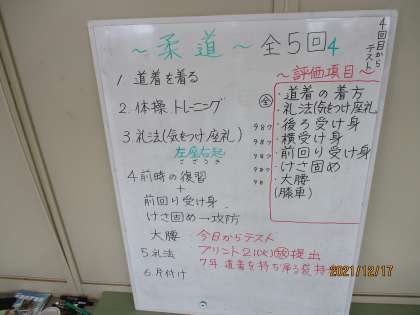 ～柔道～ 全5回 4
4回目からテスト
1. 道着を着る
2. 体操 トレーニング
3. 礼法(気をつけ 座礼)
左座右起
さざうき
4. 前時の復習
+
前回り受け身
けさ固め→攻防
大腰 今日からテスト
5. 礼法 プリント2(火) 提出
7年 道着を持ち帰る袋持
6. 片付け
～評価項目～
全
・道着の着方
・礼法(気をつけ座礼)
・後ろ受け身
・横受け身
・前回り受け身
・けさ固め
・大腰
(膝車)
2021/12/17